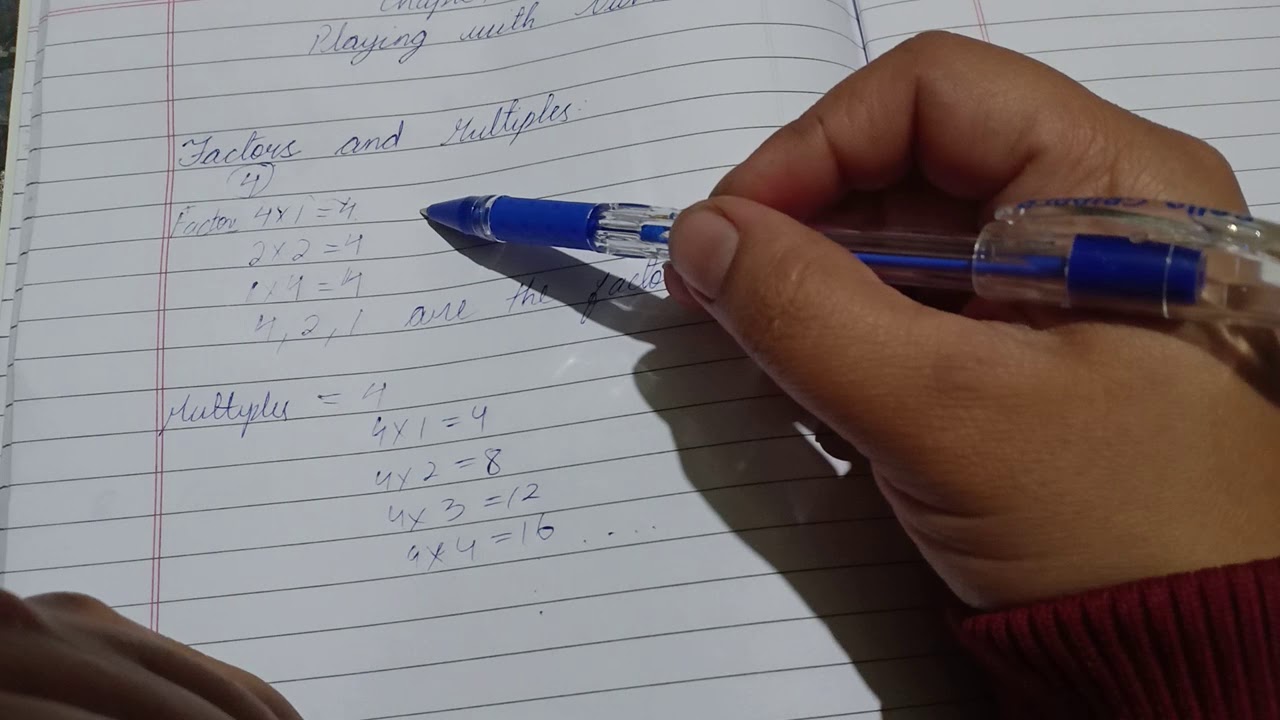 Playing with
Factors and Multiples:
4
Factor 4×1=4
2×2=4
1×4=4
4, 2, 1 are the facto
Multiples = 4
4×1=4
4×2=8
4×3=12
4×4=16 . . . . .